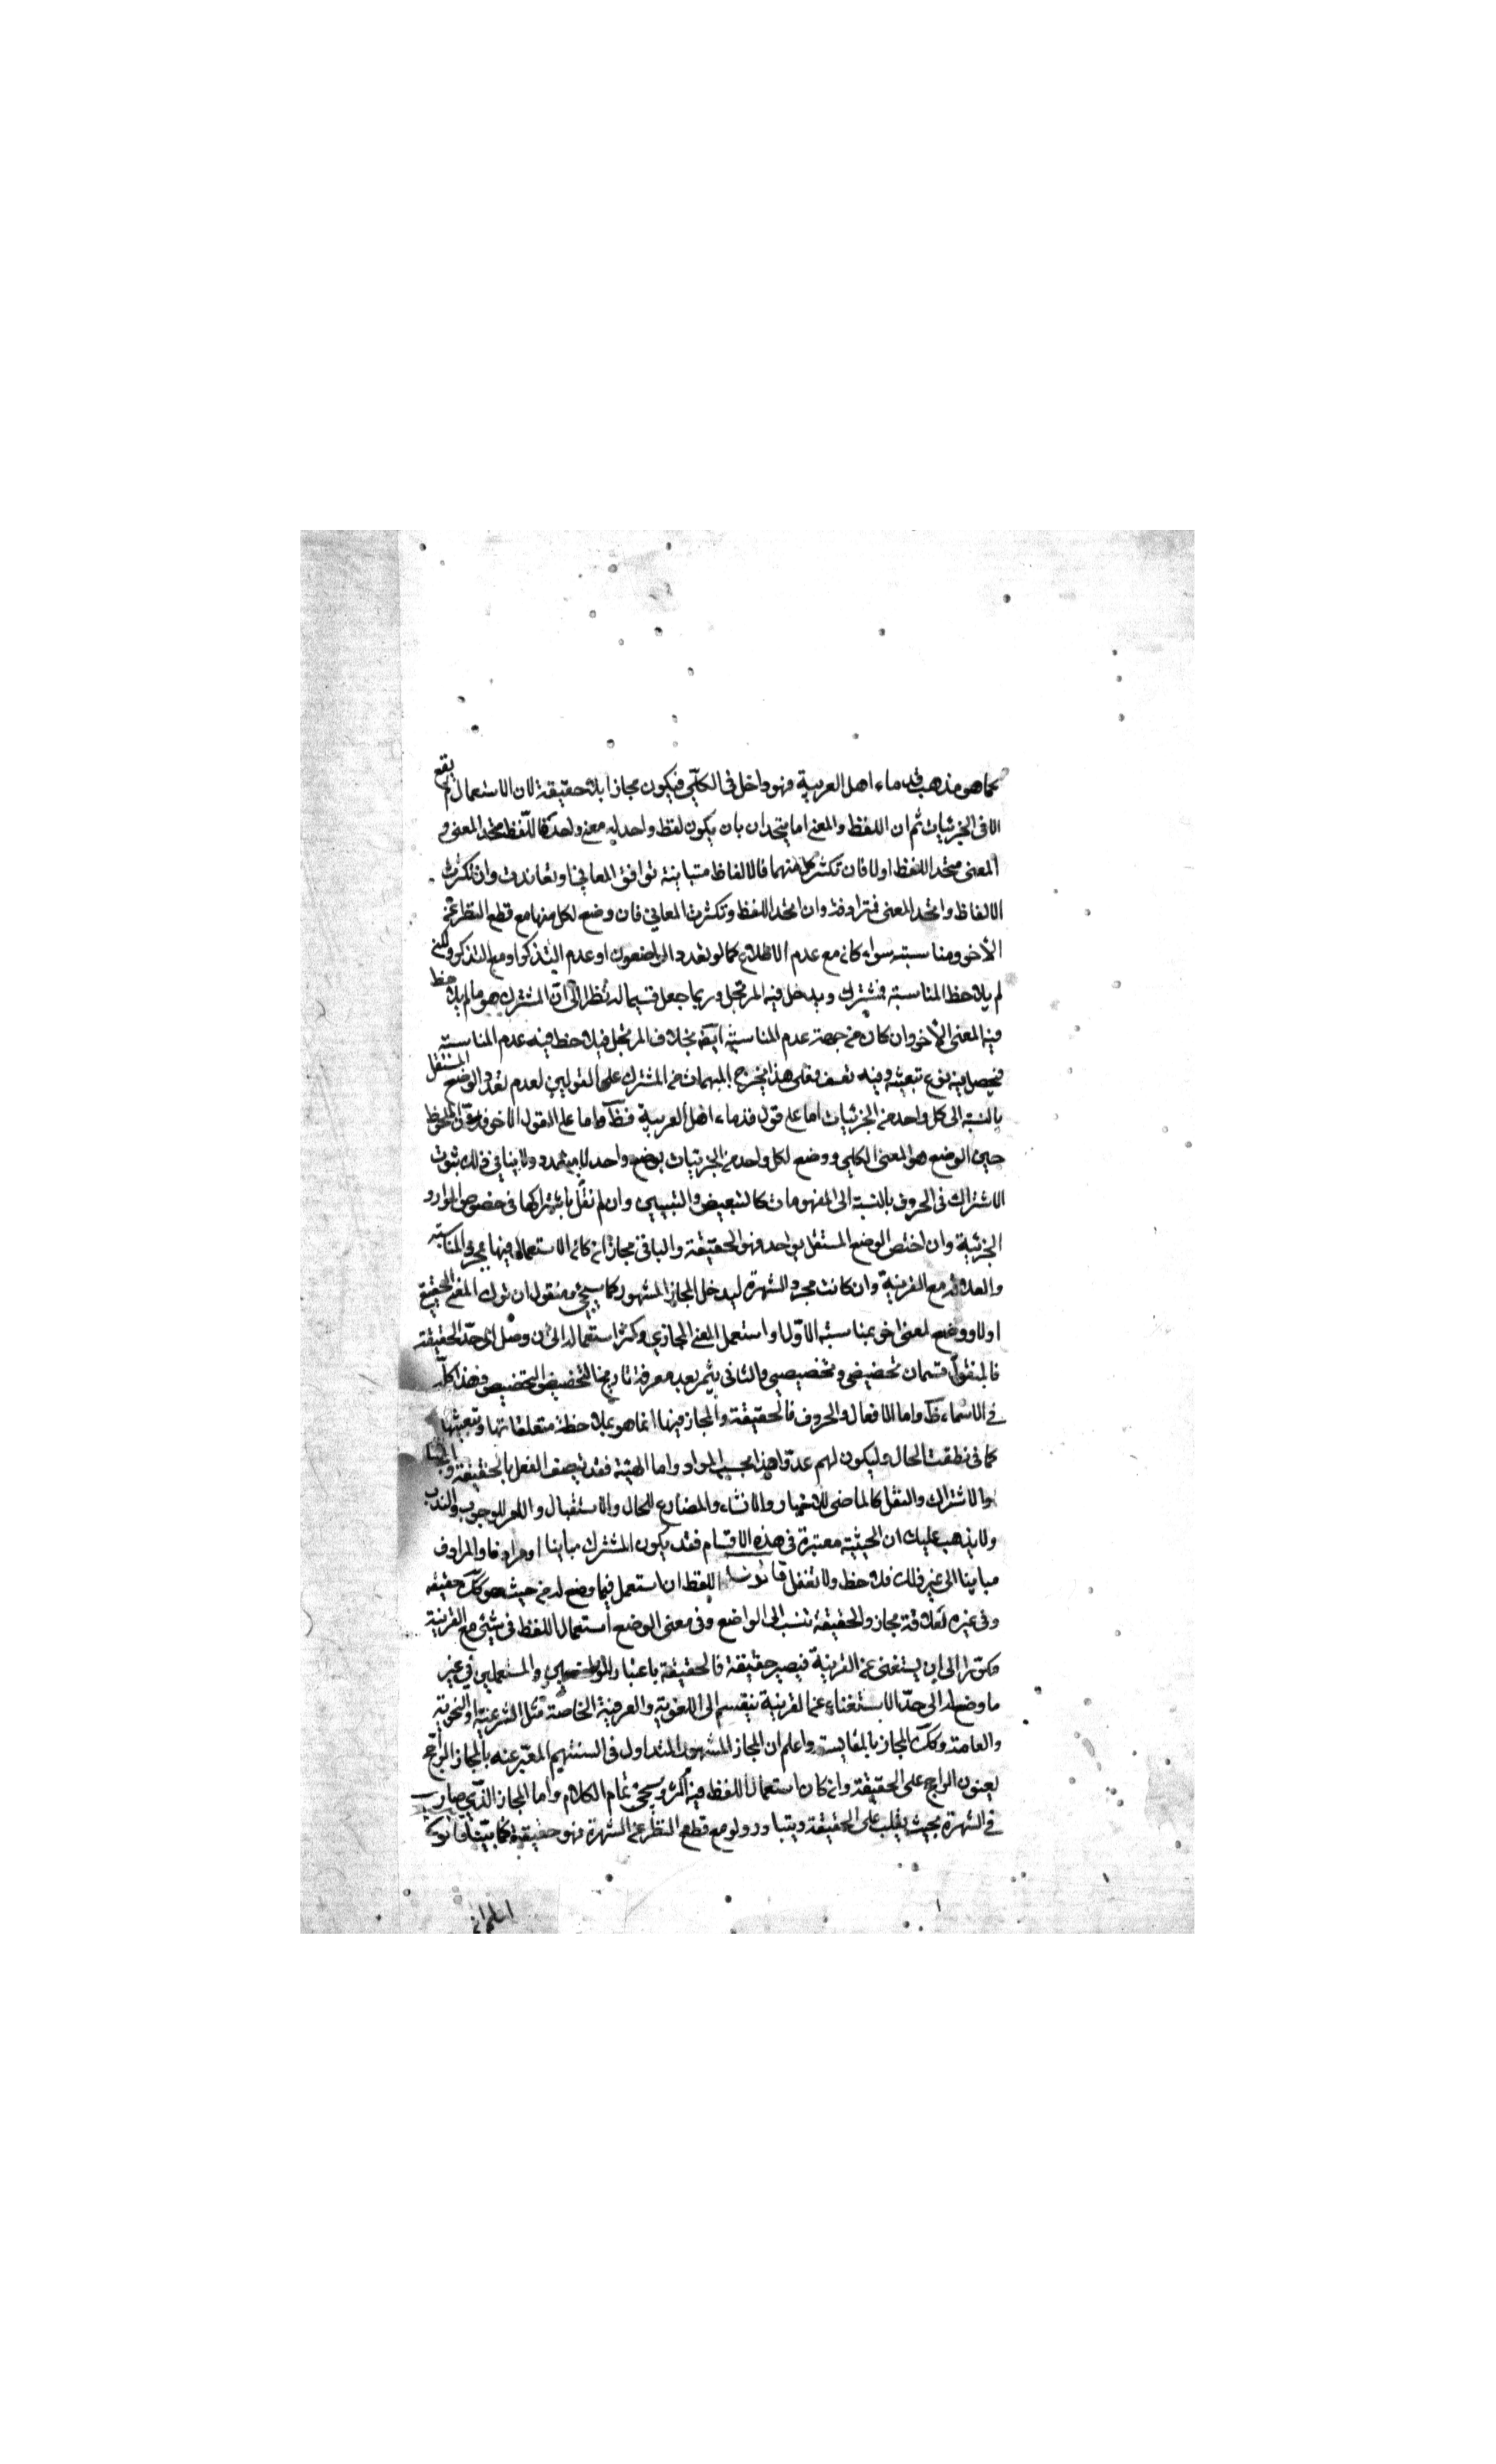 كما هو مذهب قدماء اهل العربية فهو داخل فى الكلّي فيكون مجازا بلا حقيقة لان الاستعمال لم يقع
الا فى الجزئيات ثم ان اللفظ والمعنى اما يتحدان بان يكون لفظ واحد له معنى واحد فاللّفظ متحد المعنى و
المعنى متحد اللفظ اولا فان تكثر كل منهما فالالفاظ متباينة توافق المعانى او تعاندت وان تكثرت
الالفاظ واتحد المعنى فمترادفة وان اتحد اللفظ وتكثرت المعانى فان وضع لكل منها مع قطع النظر عن
الآخر ومناسبته سواء كان مع عدم الاطلاع كما لو تعدد الواضعون او عدم التذكر او مع التذكر ولكن
لم يلاحظ المناسبة فمشترك ويدخل فيه المرتجل وربما جعل قسيما له نظرا الى ان المشترك هو ما لم يلاحظ
فيه المعنى الآخر وان كان من جهة عدم المناسبة ايضا بخلاف المرتجل فيلاحظ فيه عدم المناسبة
فيحصل فيه نوع تبعية وفيه تعسف وعلى هذا يخرج المبهمات من المشترك على القولين لعدم تعدد الوضع المستقل
بالنسبة الى كل واحد من الجزئيات اما على قول قدماء اهل العربية فظ واما على القول الاخر فلان الملحوظ
حين الوضع هو المعنى الكلي ووضع لكل واحد من الجزئيات بوضع واحد لا متعدد ولا ينافي ذلك ثبوت
الاشتراك فى الحروف بالنسبة الى المفهومات كالتبعيض والتبيين وان لم نقل باشتراكها فى خصوص الموارد
الجزئية وان اختص الوضع المستقل بواحد فهو الحقيقة والباقى مجاز ان كان الاستعمال فيها بمجرد المناسبة
والعلاقة مع القرينة وان كانت مجرد الشهرة ليدخل المجاز المشهور كما سيجئ ومنقول ان ترك المعنى الحقيقى
اولا ووضع لمعنى اخر بمناسبة الاول او استعمل المعنى المجازي وكثر استعماله الى ان وصل الى حد الحقيقة
فالمنقول قسمان تخصيصى وتخصصي والثانى يثمر بعد معرفة تاريخ التخصيص فهذا كله
فى الاسماء ظ واما الافعال والحروف فالحقيقة والمجاز فيها انما هو بملاحظة متعلقاتها وتبعيتها
كما فى نطقت الحال وليكون لهم عدوا وهذا بحسب المواد واما الهيئة فقد يتصف الفعل بالحقيقة والمجاز
والاشتراك والنقل كالماضى للاخبار والانشاء والمضارع للحال والاستقبال والامر للوجوب والندب
ولا يذهب عليك ان الحيثية معتبرة فى هذه الاقسام فقد يكون المشترك مباينا او مرادفا والمرادف
مباينا الى غير ذلك فلاحظ ولا تغفل قانون اللفظ ان استعمل فيما وضع له من حيث هو كك حقيقة
وفى غيره لعلاقة مجاز والحقيقة تنسب الى الواضع وفى معنى الوضع استعمال اللفظ فى شئ مع القرينة
مكررا الى ان يستغنى عن القرينة فيصير حقيقة فالحقيقة باعتبار الواضعين والمستعملين في غير
ما وضع له الى حد الاستغناء عن القرينة ينقسم الى اللغوية والعرفية الخاصة مثل الشرعية او النحوية
والعامة وكك المجاز بالمقايسة واعلم ان المجاز المشهور المتداول فى السنتهم المعبر عنه بالمجاز الراجح
يعنون الراجح على الحقيقة وان كان استعمال اللفظ فيه اكثر وسيجئ تمام الكلام واما المجاز الذى صار
فى الشهرة بحيث يغلب على الحقيقة ويتبادر ولو مع قطع النظر عن الشهرة فهو حقيقة كما بيّنا قانون